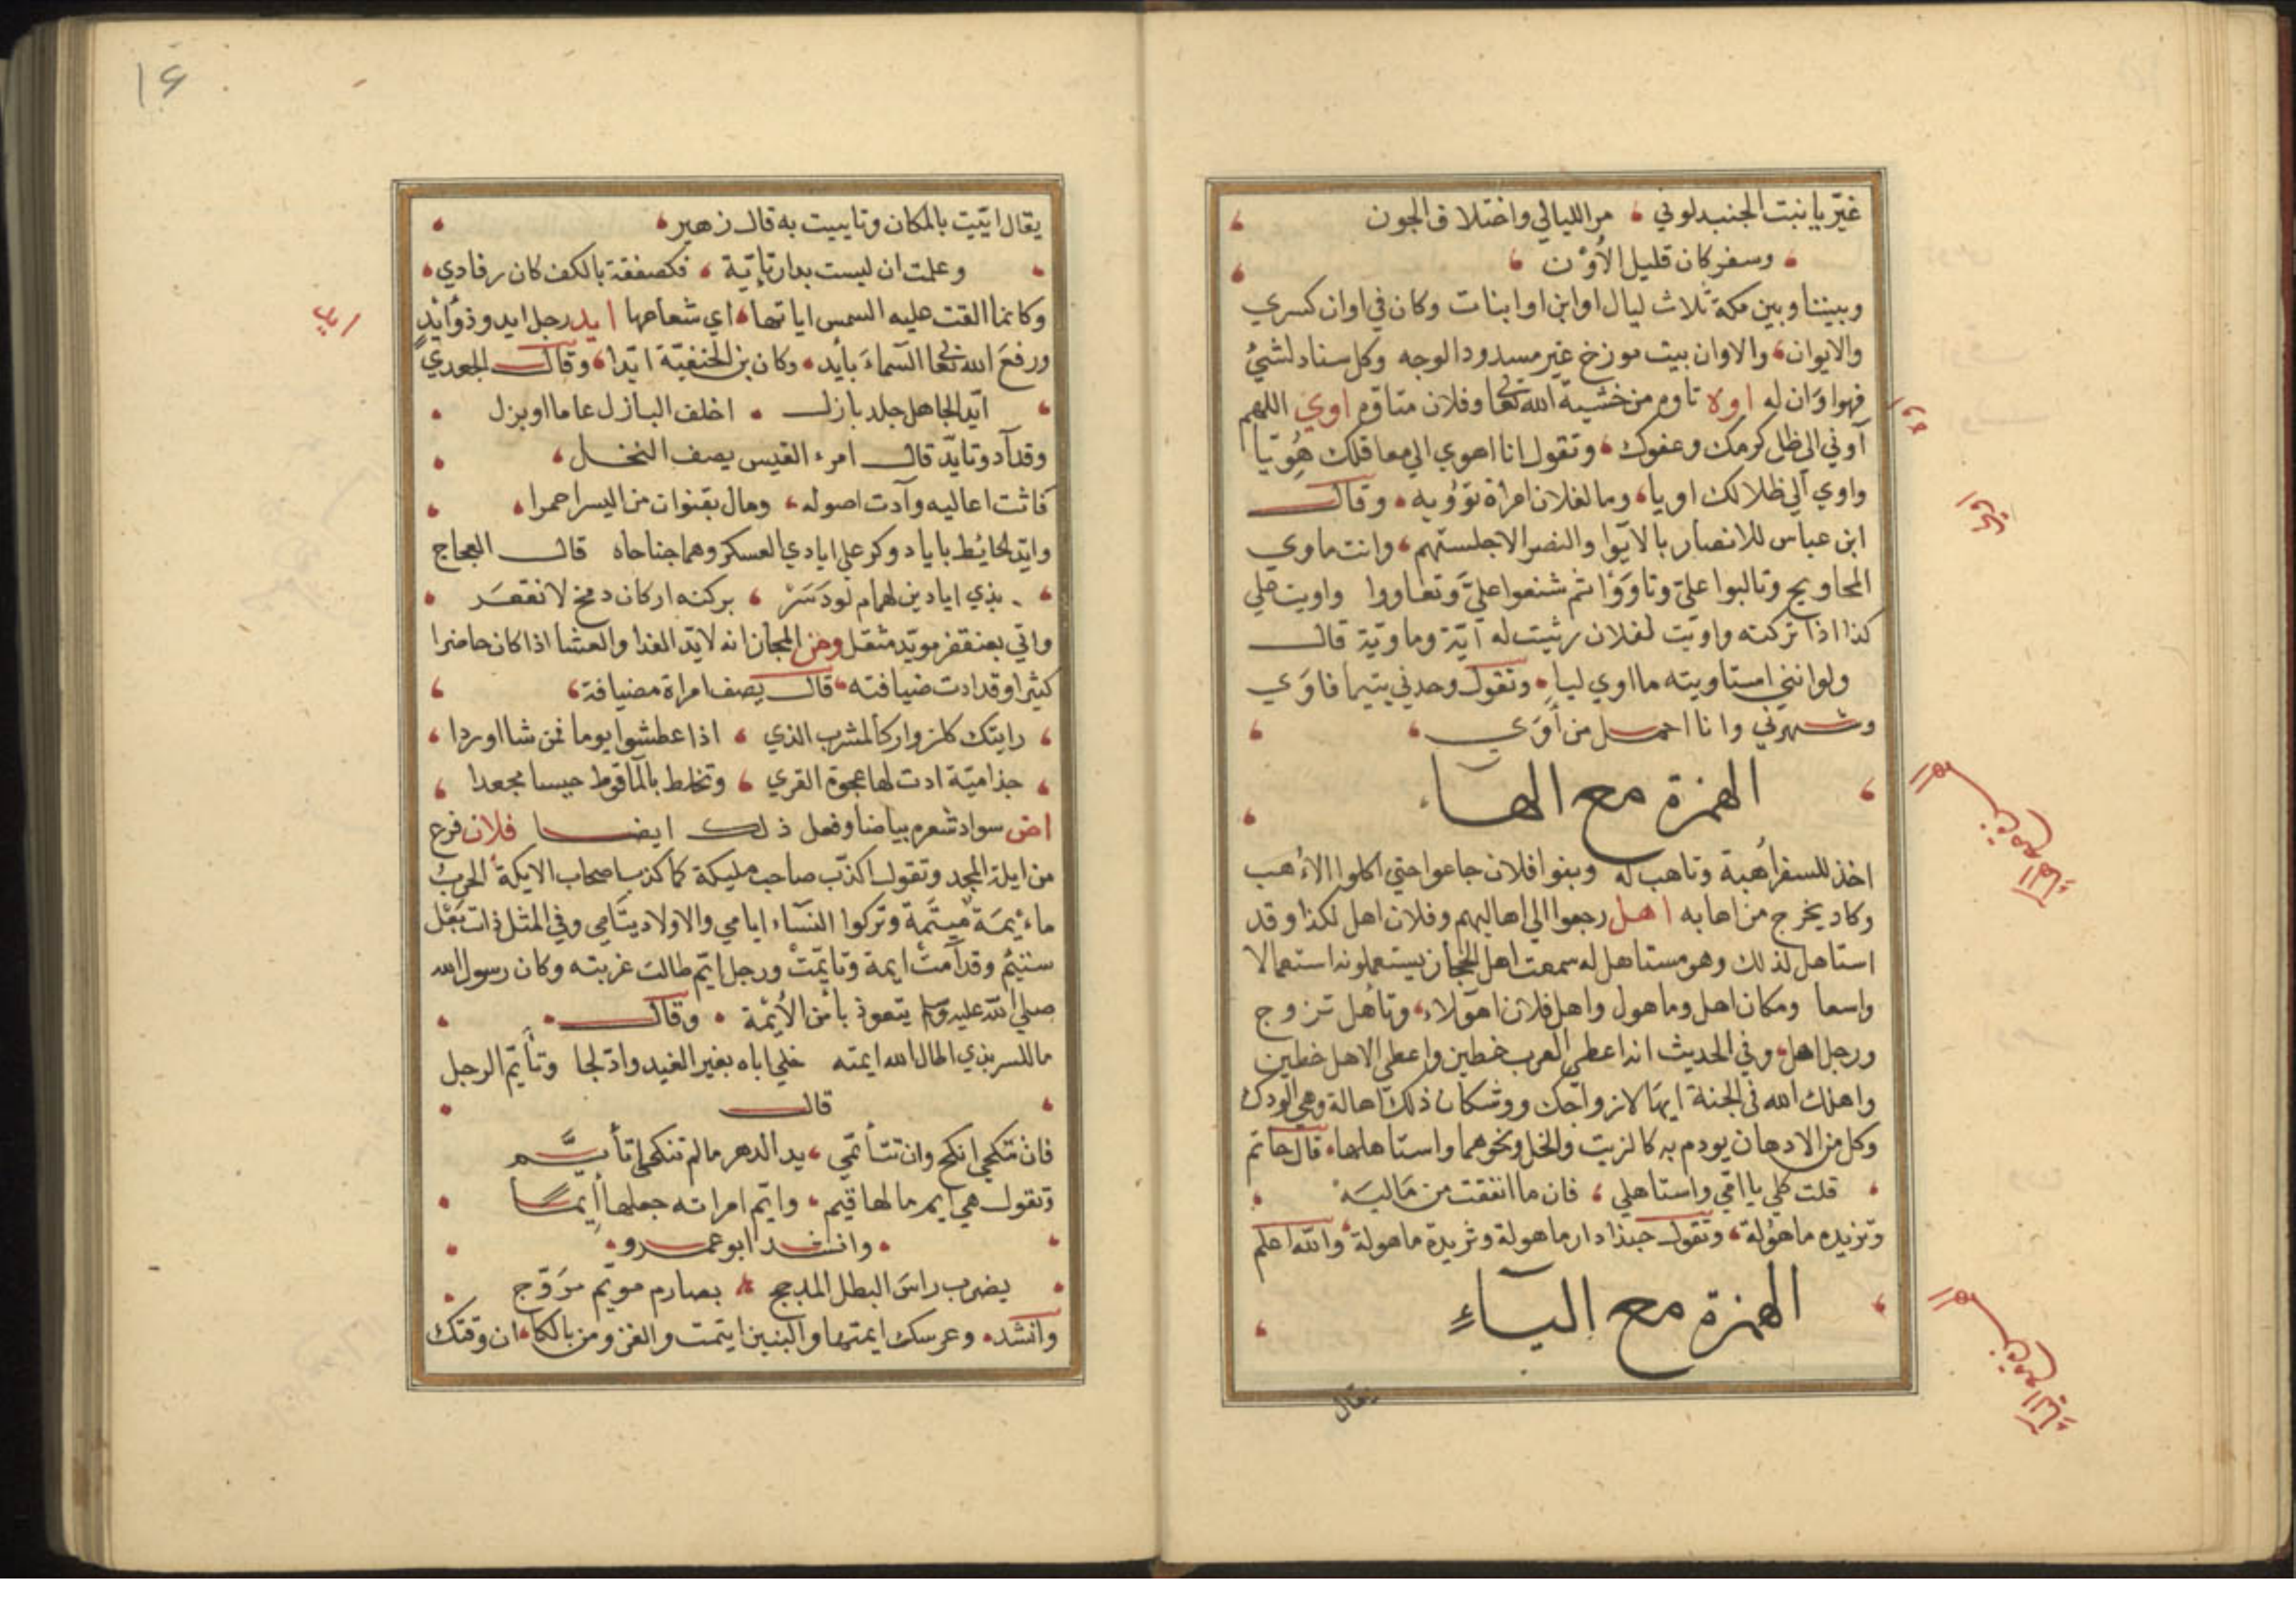 غيّر يا بنت الجنيد لوني مر الليالي واختلاف الجون
وسفر كان قليل الأون
وبيننا وبين مكة ثلاث ليال اوابن اوابنات وكان في اوان كسري
والايوان والاوان بيت موزخ غير مسدود الوجه وكل سناد لشيئ
فهو اوان له اوه تاوه من خشية الله تعا وفلان متاوه اوي اللهم
آوني الى ظل كرمك وعفوك وتقول انا اهوي الى معاقلك هُويّا
واوي الى ظلالك اويا وما لفلان امراة تؤويه وقال
ابن عباس للانصار بالايوا والنصر الاجلستم وانت ماوي
المحاويج وتالبوا عليّ وتاووا ثم شنعوا عليّ وتعاووا واويت علي
كذا اذا تركته واويت لفلان رثيت له آية وماوية قال
ولو انني استاويته ما اوي ليا وتقول وحدني يتيما فاوَي
وشهرني وانا احمل من أوَي
الهمزة مع الهاء
اخذ للسفر أهبة وتاهب له وبنوا فلان جاعوا حتي اكلوا الأهب
وكاد يخرج من اهابه اهل رجعوا الي اهاليهم وفلان اهل لكذا وقد
استاهل لذلك وهو مستاهل له سمعت اهل الحجاز يستعملونه استعمالا
واسعا ومكان اهل وماهول واهل فلان اهولاء وتأهل تزوج
ورجل اهل وفي الحديث انه اعطي العرب خطين واعطي الاهل خطين
واهلك الله في الجنة ايها لازواجك ووشكان ذلك اهالة وهي الودك
وكل من الادهان يودم به كالزيت والخل ونحوهما واستاهلها قال حاتم
قلت كلي يا امّي واستاهلي فان ما انفقت من ماليَه
وتزيده ماهولة وتقول حبذا دار ماهولة وثريدة ماهولة والله اعلم
الهمزة مع الياء
يقال
اوه
اوي
١٤
يقال ايّيت بالمكان وتاييت به قال زهير
وعلمت ان ليست بدار تإيّة فكصفقة بالكف كان رقادي
وكانما القت عليه الشمس اياتها اي شعاعها ايد رجل ايد وذو أيدٍ
ورفع الله تعا السماء بأيد وكان بن الحنفيّة ايّدا وقال الجعدي
ايّد الجاهل جلد بازل اخلف البازل عاما او بزل
وقد آد وتايّد قال امرء القيس يصف النخل
فاثت اعاليه وآدت اصوله ومال بقنوان من اليسر احمرا
وايّد الحائط باياد وكر علي ايادي العسكر وهما جناحاه قال العجاج
بذي ايادين لهام لو دَسَرْ بركنه اركان دمخ لانقعَر
واتي بعنقفز مويّد مثقل ومن المجاز انه لايّد الغدا والعشا اذا كان حاضرا
كثيرا وقد ادت ضيافته قال يصف امراة مضيافة
رايتك كلزوار كالمشرب الذي اذا عطشوا يوما فمن شا اوردا
جذاميّة ادت لها عجوة القري وتخلط بالماقوط حيسا مجعدا
اض سواد شعره بياضا وفعل ذلك ايضا فلان فرع
من ايلة المجد وتقول اكذّب صاحب مليكة كما كذب اصحاب الايكة الحرب
ماءيمة ميتمة وتركوا النساء ايامي والاولاد يتامي وفي المثل ذات بَعْل
ستئيم وقد آمت ايمة وتايّمت ورجل ايّم طالت عزبته وكان رسول الله
صلى الله عليه وسلم يتعوذ بأمن الأيمة وقال
ماللسر بذي اطال الله ايمته خلي اباه بغير الغيد وادّلجا وتأيّم الرجل
قال
فان تنكحي انكح وان تتأيّمي يد الدهر ما لم تنكحي اتأيّم
وتقول هي ايم ما لها قيم وايّم امراته جعلها أيما
وانشد ابو عمرو
يضرب راس البطل المدجج بصارم مويّم مزوّج
وانشد وعرسك ايمتها والبنين ايتمت والغزو من بالكا ان وقتك
ايد